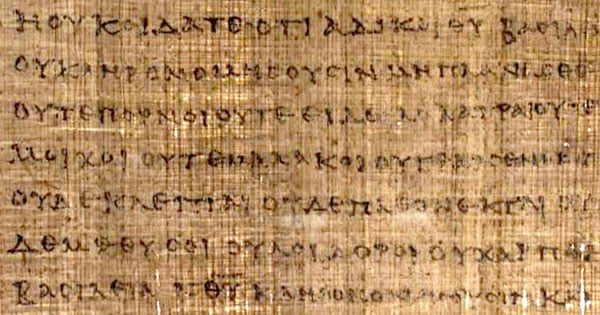 Η ΟΥΚ ΟΙΔΑΤΕ ΟΤΙ ΑΔΙΚΟΙ ΘΥ ΒΑCΙΛ
ΟΥ ΚΛΗΡΟΝΟΜΗCΟΥCΙΝ ΜΗ ΠΛΑΝΑCΘΕ
ΟΥΤΕ ΠΟΡΝΟΙ ΟΥΤΕ ΕΙΔΩΛΟΛΑΤΡΑΙ ΟΥΤΕ
ΜΟΙΧΟΙ ΟΥΤΕ ΜΑΛΑΚΟΙ
ΟΥΔΕ ΚΛΕΠΤΑΙ ΟΥΔΕ ΠΛΕΟΝΕΚΤΑΙ ΟΥ
ΔΕ ΜΕΘΥCΟΙ ΟΥ ΛΟΙΔΟΡΟΙ ΟΥΧ ΑΡΠΑ
ΒΑCΙΛΕΙΑΝ ΘΥ ΚΛΗΡΟΝΟΜΗCΟΥCΙΝ ΚΑ